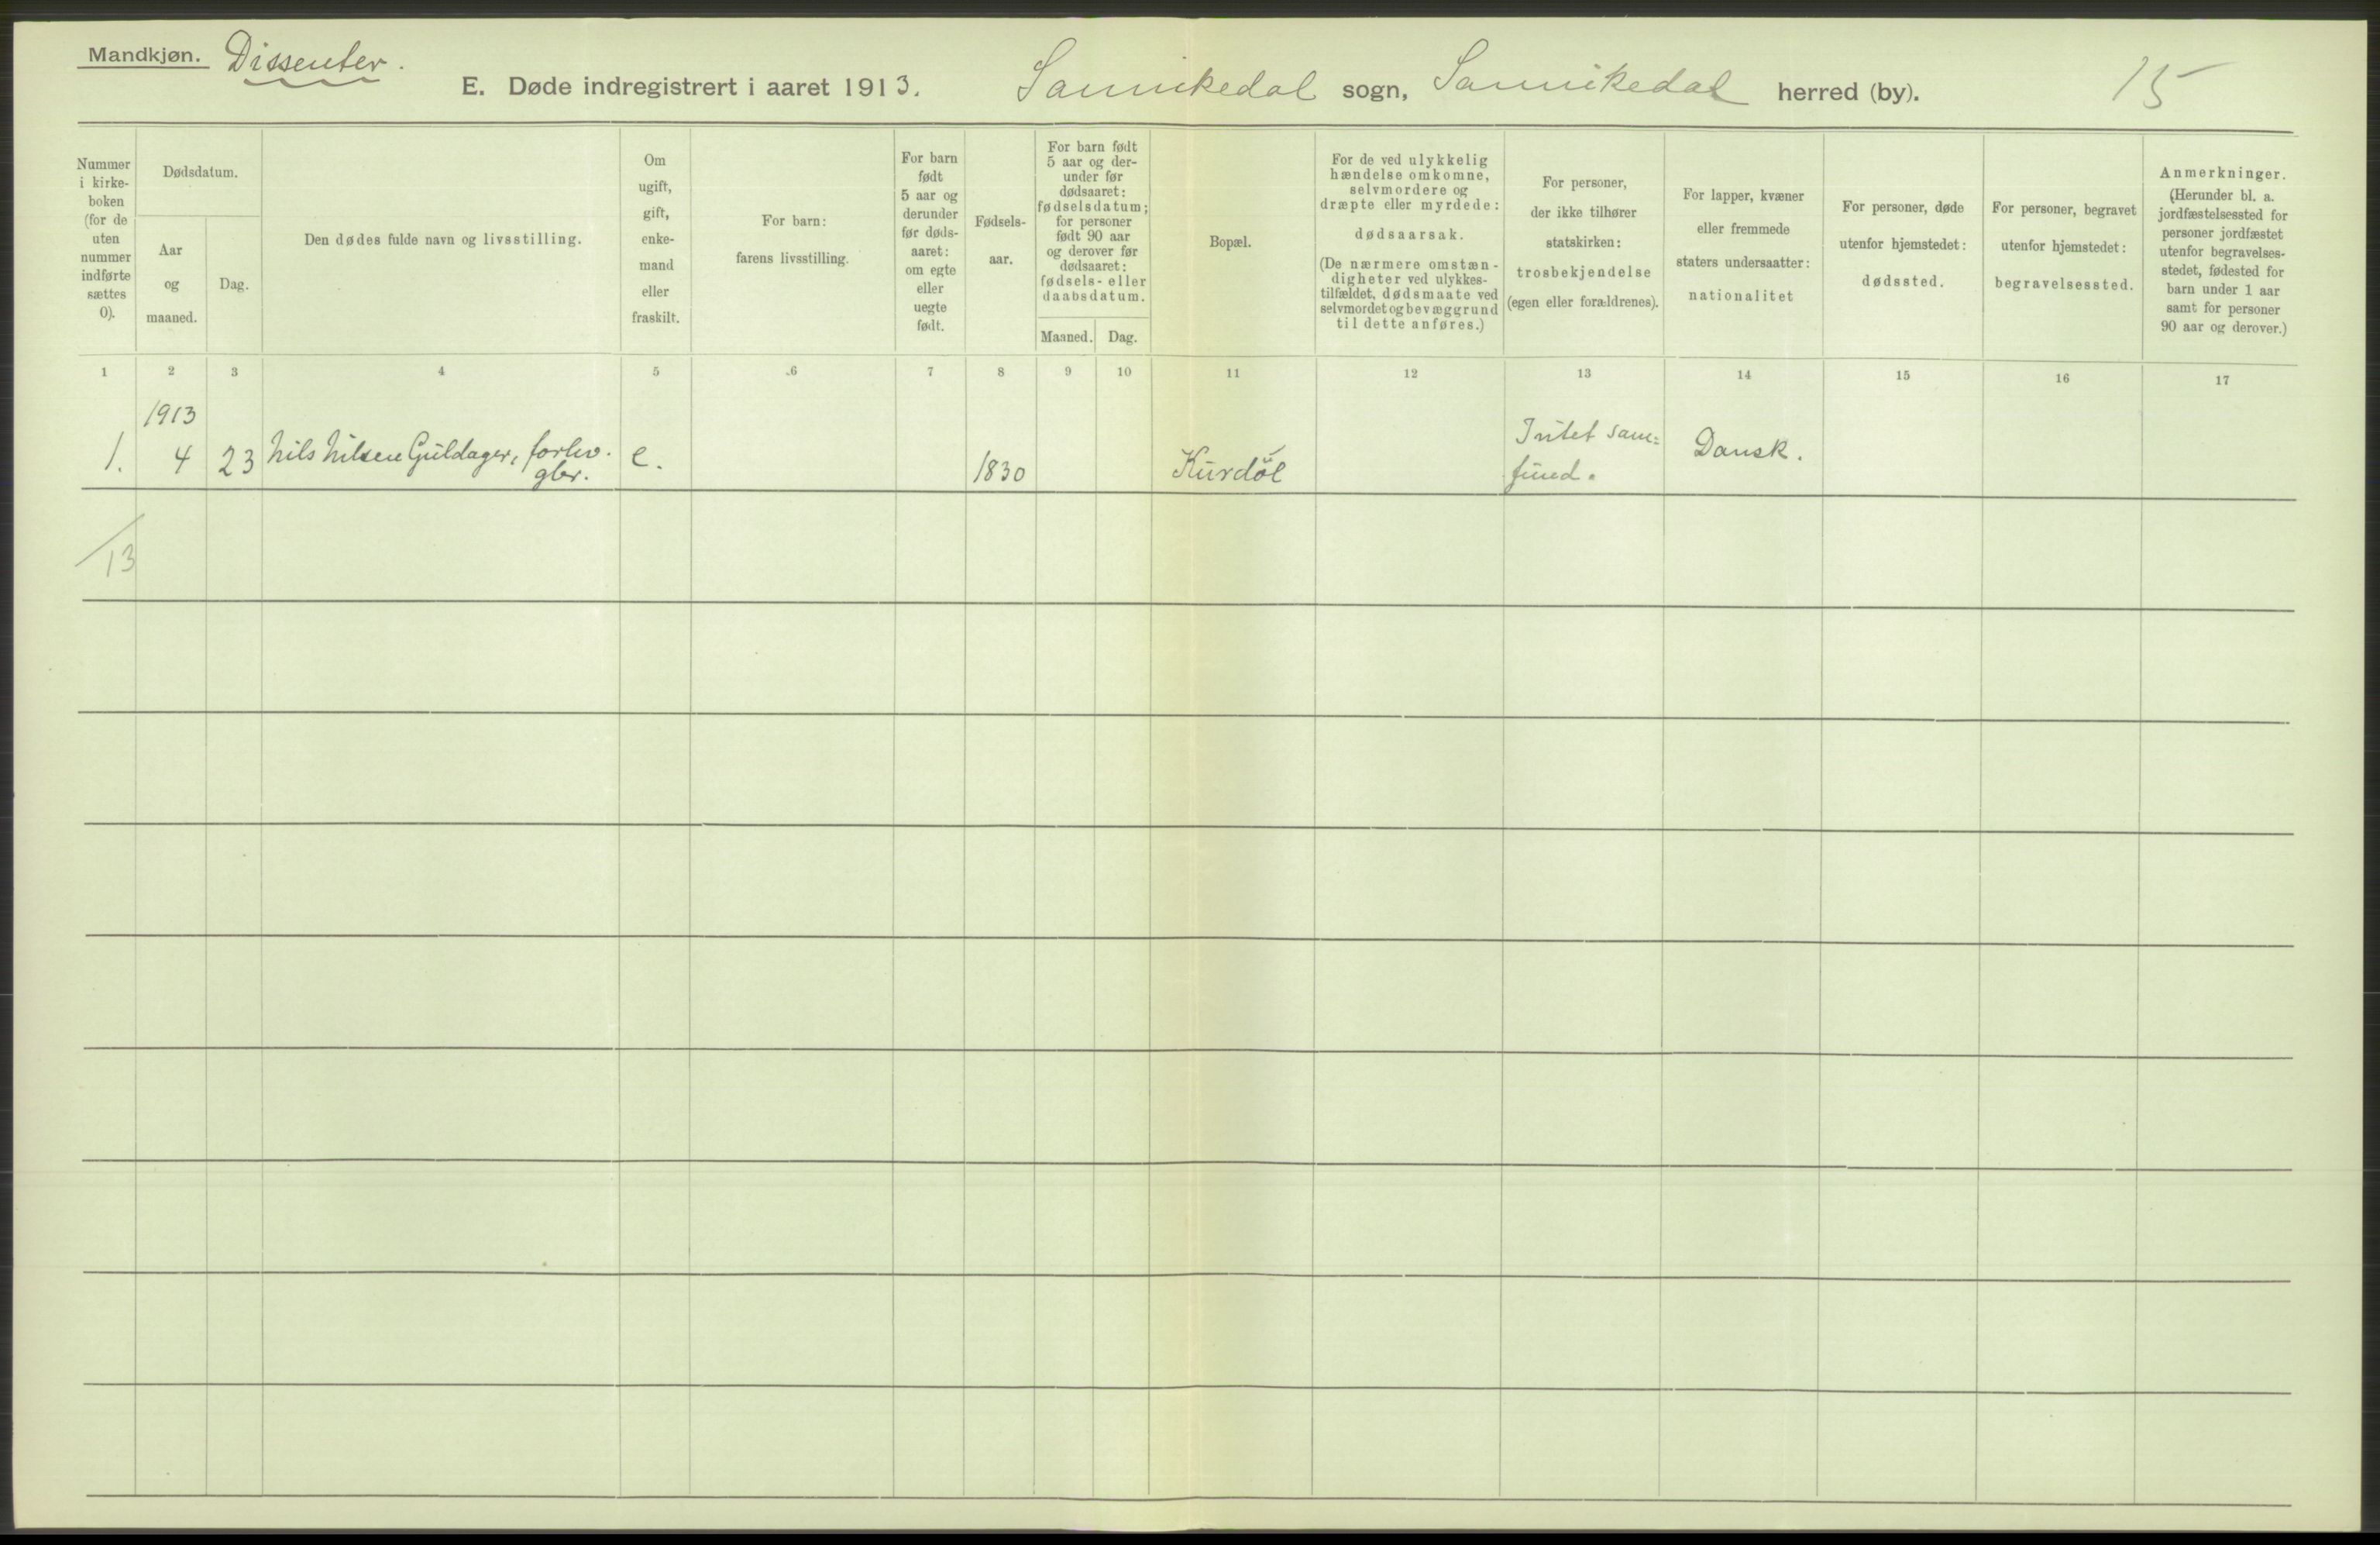 Mandkjøn. Dissenter.
E. Døde indregistrert i aaret 1913. Sannikedal sogn, Sannikedal herred (by). 15
Nummer
i kirke-
boken
(for de
uten
nummer
indførte
sættes
0).
Dødsdatum.
Aar
og
maaned.
Dag.
Den dødes fulde navn og livsstilling.
Om
ugift,
gift,
enke-
mand
eller
fraskilt.
For barn:
farens livsstilling.
For barn
født
5 aar og
derunder
før døds-
aaret:
om egte
eller
uegte
født.
Fødsels-
aar.
For barn født
5 aar og der-
under før
dødsaaret:
fødselsdatum;
for personer
født 90 aar
og derover før
dødsaaret:
fødsels- eller
daabsdatum.
Maaned. Dag.
Bopæl.
For de ved ulykkelig
hændelse omkomne,
selvmordere og
dræpte eller myrdede:
dødsaarsak.
(De nærmere omstæn-
digheter ved ulykkes-
tilfældet, dødsmaate ved
selvmordet og bevæggrund
til dette anføres.)
For personer,
der ikke tilhører
statskirken:
trosbekjendelse
(egen eller forældrenes).
For lapper, kvæner
eller fremmede
staters undersaatter:
nationalitet
For personer, døde
utenfor hjemstedet:
dødssted.
For personer, begravet
utenfor hjemstedet:
begravelsessted.
Anmerkninger.
(Herunder bl. a.
jordfæstelsessted for
personer jordfæstet
utenfor begravelses-
stedet, fødested for
barn under 1 aar
samt for personer
90 aar og derover.)
1 2 3 4 5 6 7 8 9 10 11 12 13 14 15 16 17
1913
1. 4 23 Nils Nilsen Guldager, forhv. e. 1830 Kurdøl Intet sam= Dansk.
gbr. fund.
13